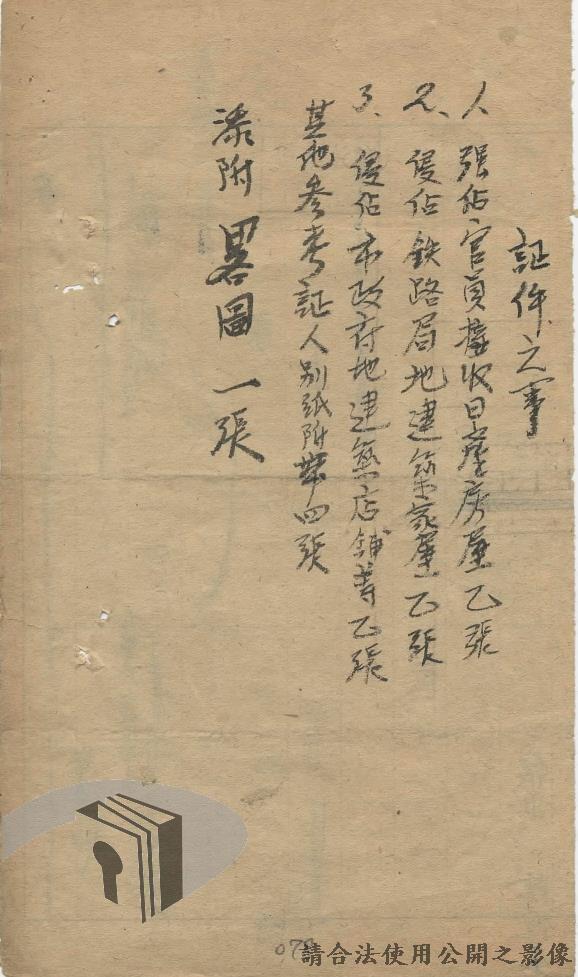 証件之事
1、强佔官員接收日產房屋乙張
2、侵佔鉄路局地建築家屋乙張
3、侵佔市政府地建築店舖等乙張
其他參考証人別紙附帶四張
添附 畧圖 一張
請合法使用公開之影像